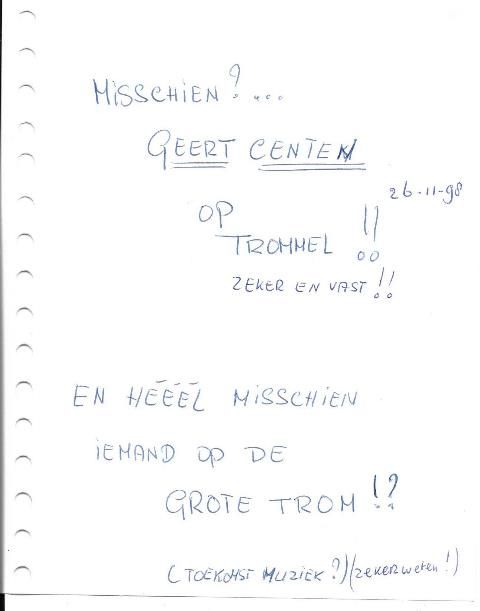 MISSCHIEN?...
GEERT CENTEN
26-11-98
OP
TROMMEL !!
ZEKER EN VAST!!
EN HÉÉÉL MISSCHIEN
iEMAND OP DE
GROTE TROM!?
(TOEKOMST MUZIEK?)(zeker weten!)